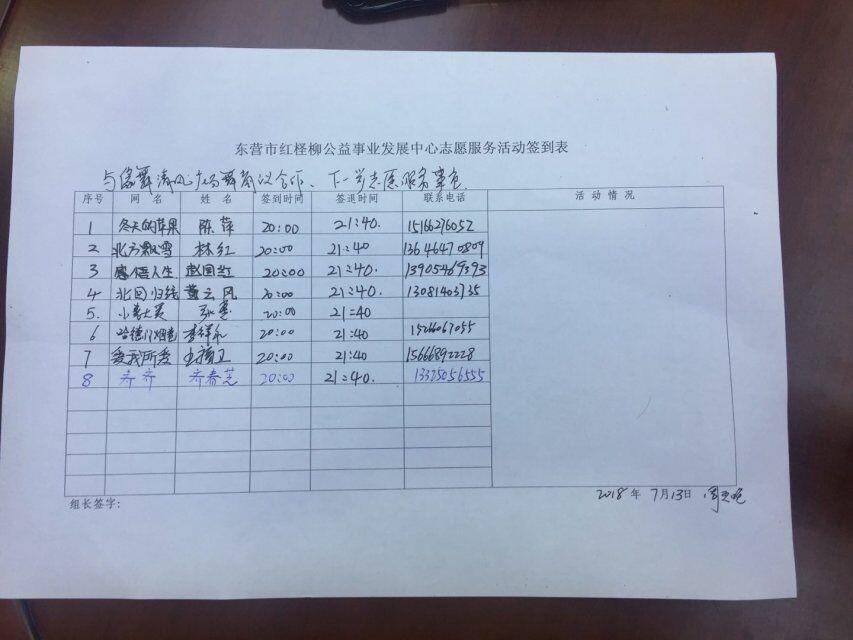 东营市红柽柳公益事业发展中心志愿服务活动签到表
舞清风广场舞 合作、下一步志愿服务事宜
序号 网名 姓名 签到时间 签退时间 联系电话 活动情况
1 冬天的苹果 陈萍 20:00 21:40. 15166276052
2 北方飘雪 林红 20:00 21:40 13646470809
3 感悟人生 赵国红 20:00 21:40. 13905469393
4 北回归线 黄云风 20:00 21:40. 13081403735
5. 小 大 20:00 21:40
6 哈德门烟 李祥 20:00 21:40 15266067055
7 爱我所爱 卫 20:00 21:40 15666892228
8 齐齐 齐春芝 20:00 21:40. 13325056555
组长签字:
2018年 7月13日